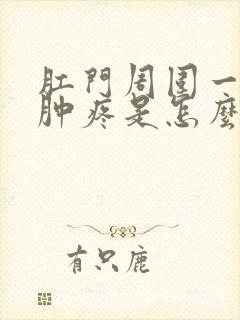 肛門周圍一
肿疼是怎麼
有只鹿